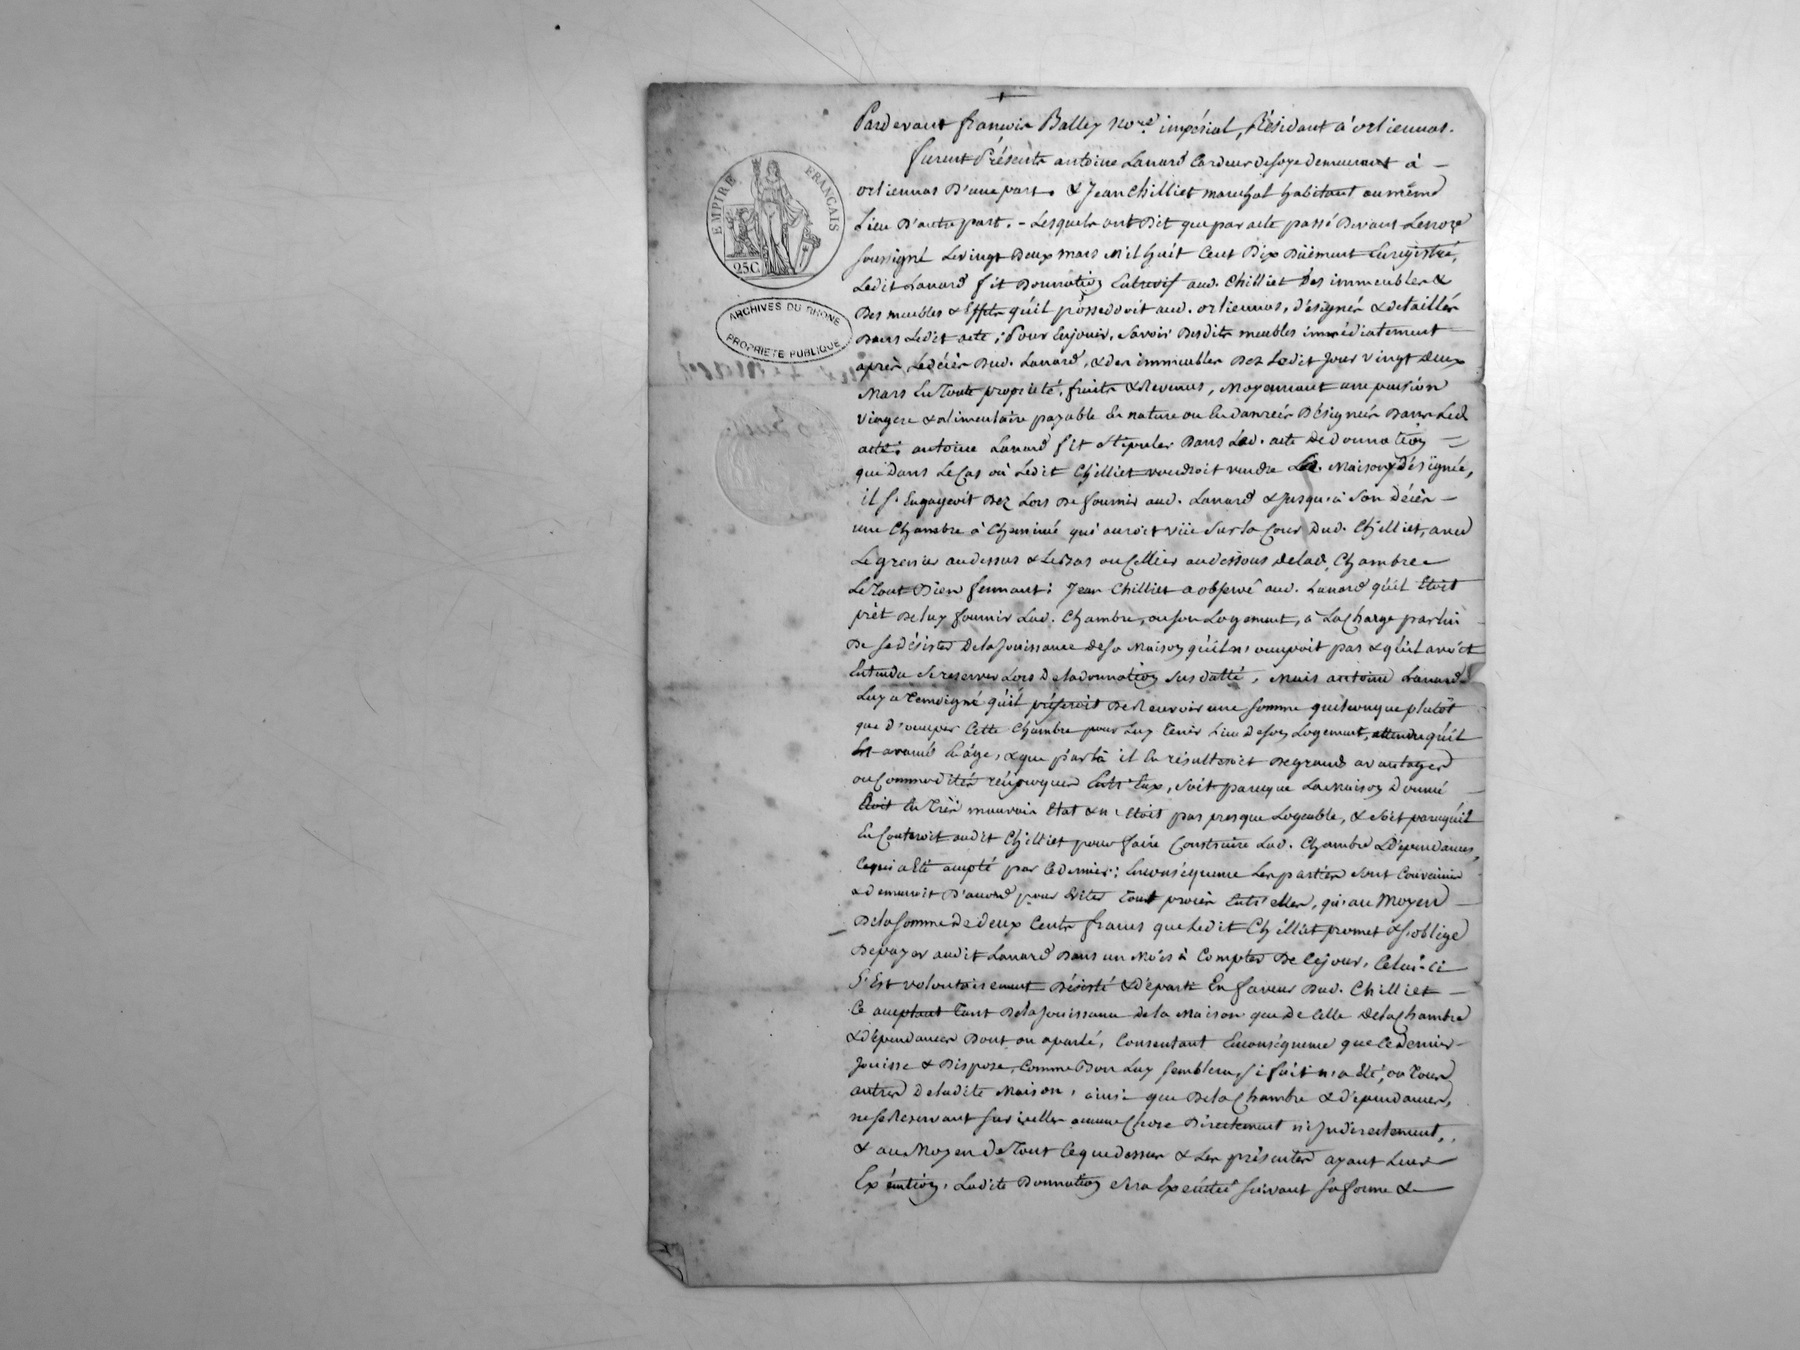 Pardevant françois Balley No.re impérial, Résidant à orliennas.
furent Présents antoine Lanard Cardeur de soye demeurant à
orliennas D'une part, & Jean Chilliet marechal habitant au même
Lieu D'autre part. - Lesquels ont Dit que par acte passé Devant Le no.re
soussigné Le vingt Deux mars Mil huit Cent Dix Düement Enregistré,
Ledit Lanard fit Donnation Entrevif aud. Chilliet Des immeubles &
Des meubles & Effets qu'il possedoit aud. orliennas, désignés & detaillés
Dans Ledit acte ; Pour En jouir, Savoir Desdits meubles immédiatement
après Le décès Dud. Lanard, & des immeubles Dez Ledit Jour vingt deux
Mars En Toute propriété, fruits & Revenus, Moyennant une pension
viagere & alimentaire payable En nature ou En Danrées Désignées Dans Led.
acte. antoine Lanard fit Stipuler Dans Led. acte De Donnation
que Dans Le Cas où Ledit Chilliet voudroit vendre La. Maison désignée,
il s'Engageoit Dez Lors De fournir aud. Lanard & Jusqu'à Son Décès
une Chambre à Cheminé qui auroit vüe Sur la Cour Dud. Chilliet, avec
Le grenier au dessus & Le Bas ou Cellier au dessous de lad. Chambre
Le Tout Bien fermant ; Jean Chilliet a observé aud. Lanard qu'il Etoit
prêt De luy fournir Lad. Chambre, ou son Logement, à La Charge par lui
De se désister De la Jouissance de sa Maison qu'il n'occupoit pas & qu'il avoit
Entendu Se reserver Lors De la donnation Sus datté, Mais antoine Lanard
Luy a Temoigné qu'il préferoit De Recevoir une somme quelconque plutôt
que d'occuper Cette Chambre pour Luy Tenir Lieu de son Logement, attendu qu'il
Est avancé En âge, & que par là il En résulteroit De grands avantages
ou Commodités réciproques Entr'Eux, Soit parceque La Maison Donnée
Etoit En Très mauvais Etat & n'Etoit pas presque Logeable, & Soit parcequ'il
En Couteroit audit Chilliet pour faire Construire Lad. Chambre & Dépendances,
Ce qui a Eté accepté par Ce dernier ; En Conséquence Les parties Sont Convenues
& demeuroit D'accord pour Eviter Tout procès Entr'elles, qu'au Moyen
De la somme De deux Cents francs que Ledit Chilliet promet & s'oblige
De payer audit Lanard Dans un Mois à Compter De Ce jour, Celui-ci
S'Est volontairement Désisté & Départi En faveur Dud. Chilliet
Ce acceptant Tant De la Jouissance de la Maison que De Celle De la Chambre
& dépendances Dont on a parlé, Consentant En conséquence que Ce dernier
Jouisse & Dispose Comme Bon Luy Semblera, Si fait n'a Eté, ou Tous
autres De ladite Maison, ainsi que De la Chambre & dépendances,
ne se Reservant Sur icelles aucune Chose Directement ni Indirectement,
& au Moyen de Tout Ce que dessus & Les présentes ayant Leur
Exécution, Ladite Donnation Sera Exécutée Suivant sa forme &
EMPIRE FRANÇAIS
25C
ARCHIVES DU RHONE
PROPRIETE PUBLIQUE